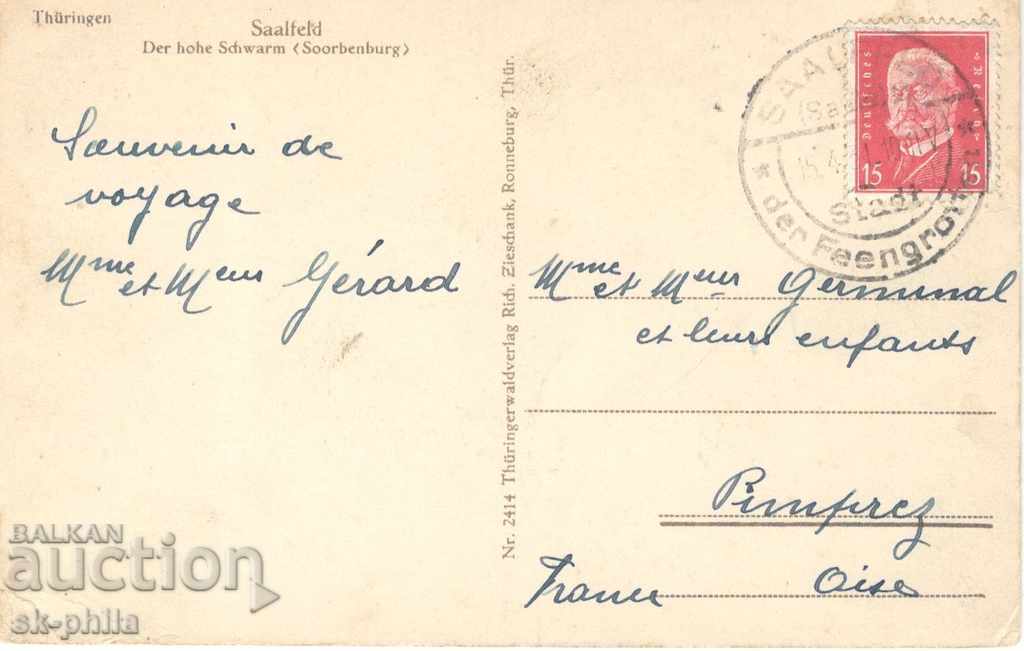 Thüringen
Saalfeld
Der hohe Schwarm (Soorbenburg)
Souvenir de
voyage
Mme et Meur Gérard
Nr. 2414 Thüringerwaldverlag Rich. Zieschank, Ronneburg, Thür.
Deutsches Reich
15 15
SAALFELD
(Saale)
Stadt
* der Feengrotten *
Mme et Meur Germinal
et leurs enfants
Pimprez
Oise
France
BALKAN
auction
sk-phila